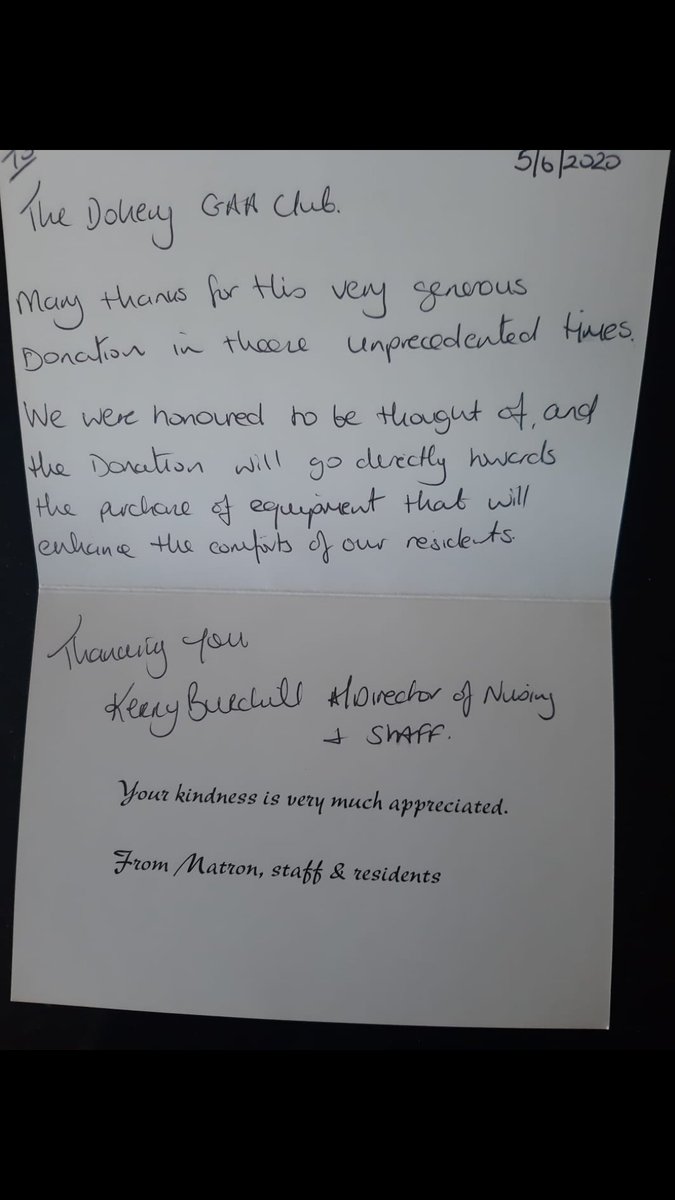 To
5/6/2020
The Doheny GAA Club.
Many thanks for this very generous
Donation in these unprecedented times.
We were honoured to be thought of, and
the Donation will go directly towards
the purchase of equipment that will
enhance the comforts of our residents.
Thanking you
Kerry Burchill A/Director of Nursing
+ STAFF.
Your kindness is very much appreciated.
From Matron, staff & residents